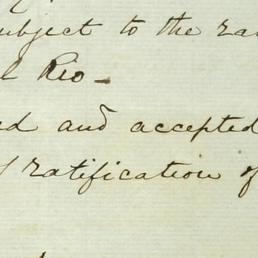 subject to the ra
l Rio -
ed and accepted
f ratification of